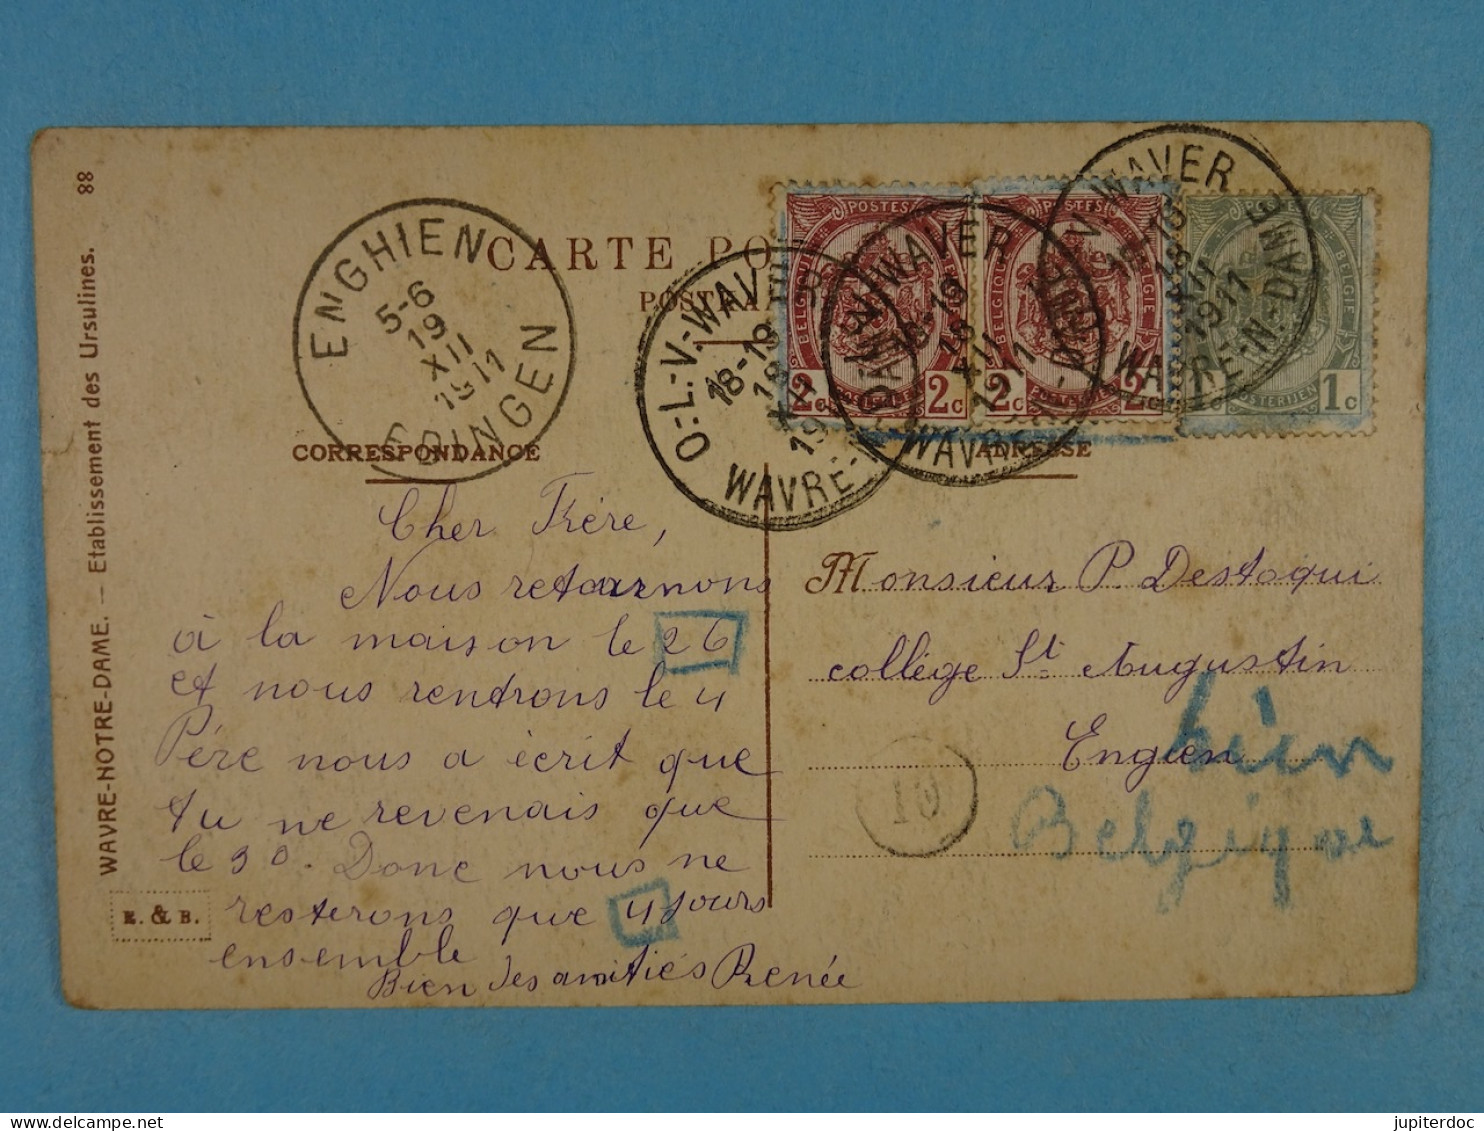 88
WAVRE-NOTRE-DAME. — Etablissement des Ursulines.
E. & B.
CARTE PO
POSTKA
CORRESPONDANCE
ADRESSE
ENGHIEN
5-6
19
XII
1911
EDINGEN
O.-L.-V.-WAV
18-19
18
XII
19
WAVRE-N
WAVER
18-19
18
XII
1911
WAVRE
-DAME
V-WAVER
18
XII
1911
WAVRE-N.-DAME
POSTES
BELGIQUE
2c 2c
POSTERIJEN
POSTES
BELGIQUE
2c 2c
BELGIE
1c
POSTERIJEN
Cher Frère,
Nous retournons
à la maison le 26
et nous rentrons le 4
Père nous a écrit que
tu ne revenais que
le 30. Donc nous ne
resterons que 4 jours
ensemble
Bien des amitiés Renée
Monsieur P. Destoqui
collège St Augustin
Engien
hien
Belgique
10
jupiterdoc